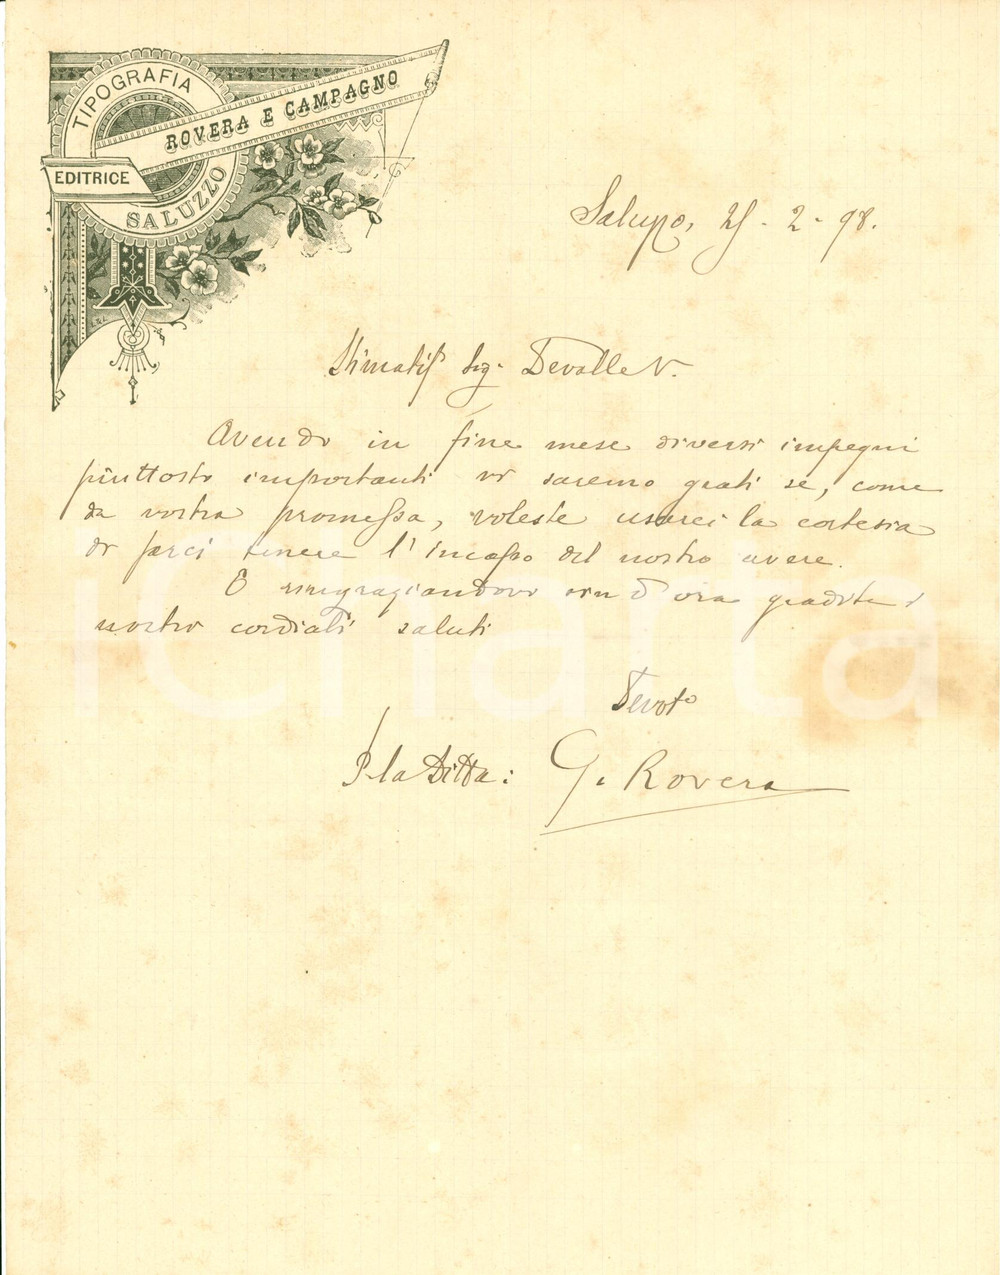 TIPOGRAFIA
EDITRICE
ROVERA E CAMPAGNO
SALUZZO
Saluzzo, 25 - 2 - 98.
Stimatis. Sig. Devalle V.
Avendo in fine mese diversi impegni
piuttosto importanti vi saremo grati se, come
da vostra promessa, voleste usarci la cortesia
di farci tenere l'incasso del nostro avere.
E ringraziandovi sin d'ora gradite i
nostri cordiali saluti
Devoto
P. la Ditta: G. Rovera
iCharta